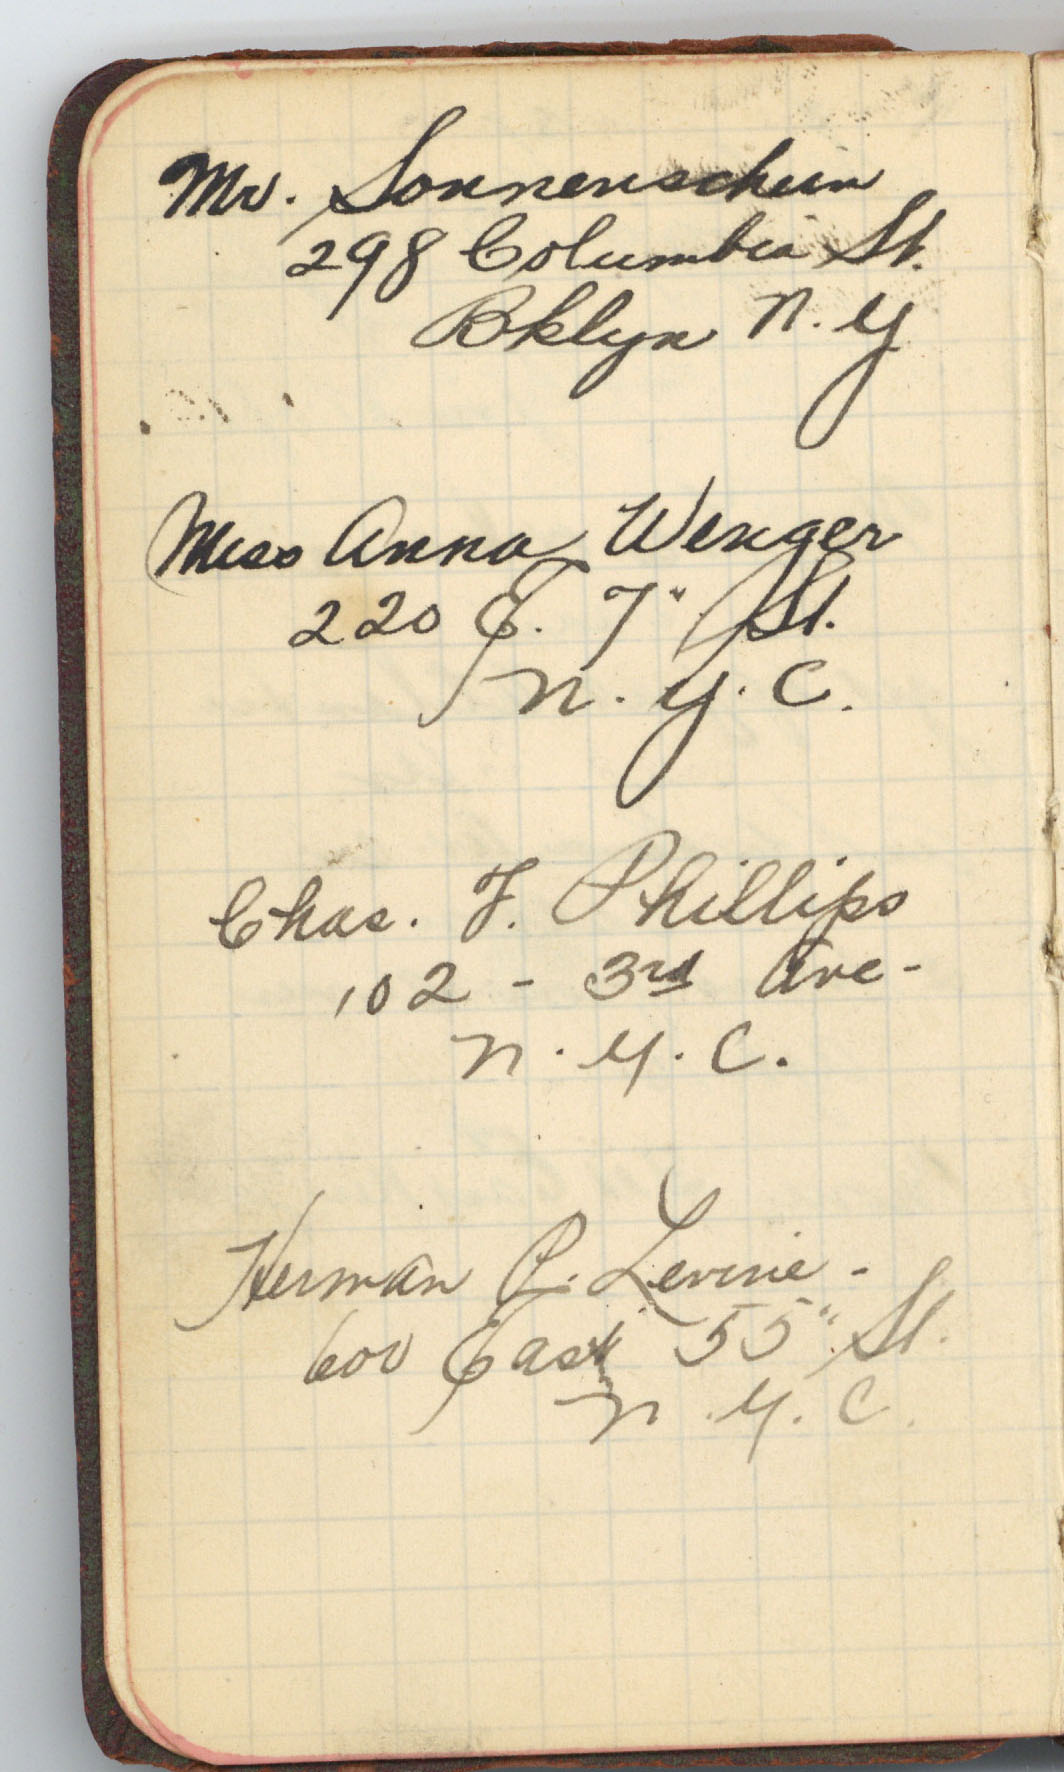 Mr. Sonnenschein
298 Columbia St.
Bklyn N.Y
Miss Anna Wenger
220 E. 7" St.
N.Y.C.
Chas. F. Phillips
102 - 3rd Ave-
N.Y.C.
Herman P. Levine -
600 East 55" St.
N.Y.C.